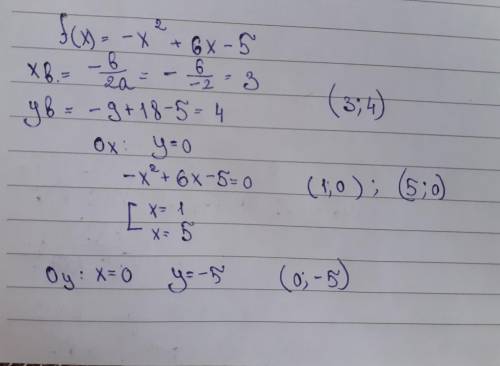 f(x) = -x² + 6x - 5
xв. = -b/2a = - 6/-2 = 3
yв = -9 + 18 - 5 = 4 (3; 4)
Ox: y = 0
-x² + 6x - 5 = 0 (1; 0) ; (5; 0)
[ x = 1
x = 5
Oy: x = 0 y = -5 (0; -5)